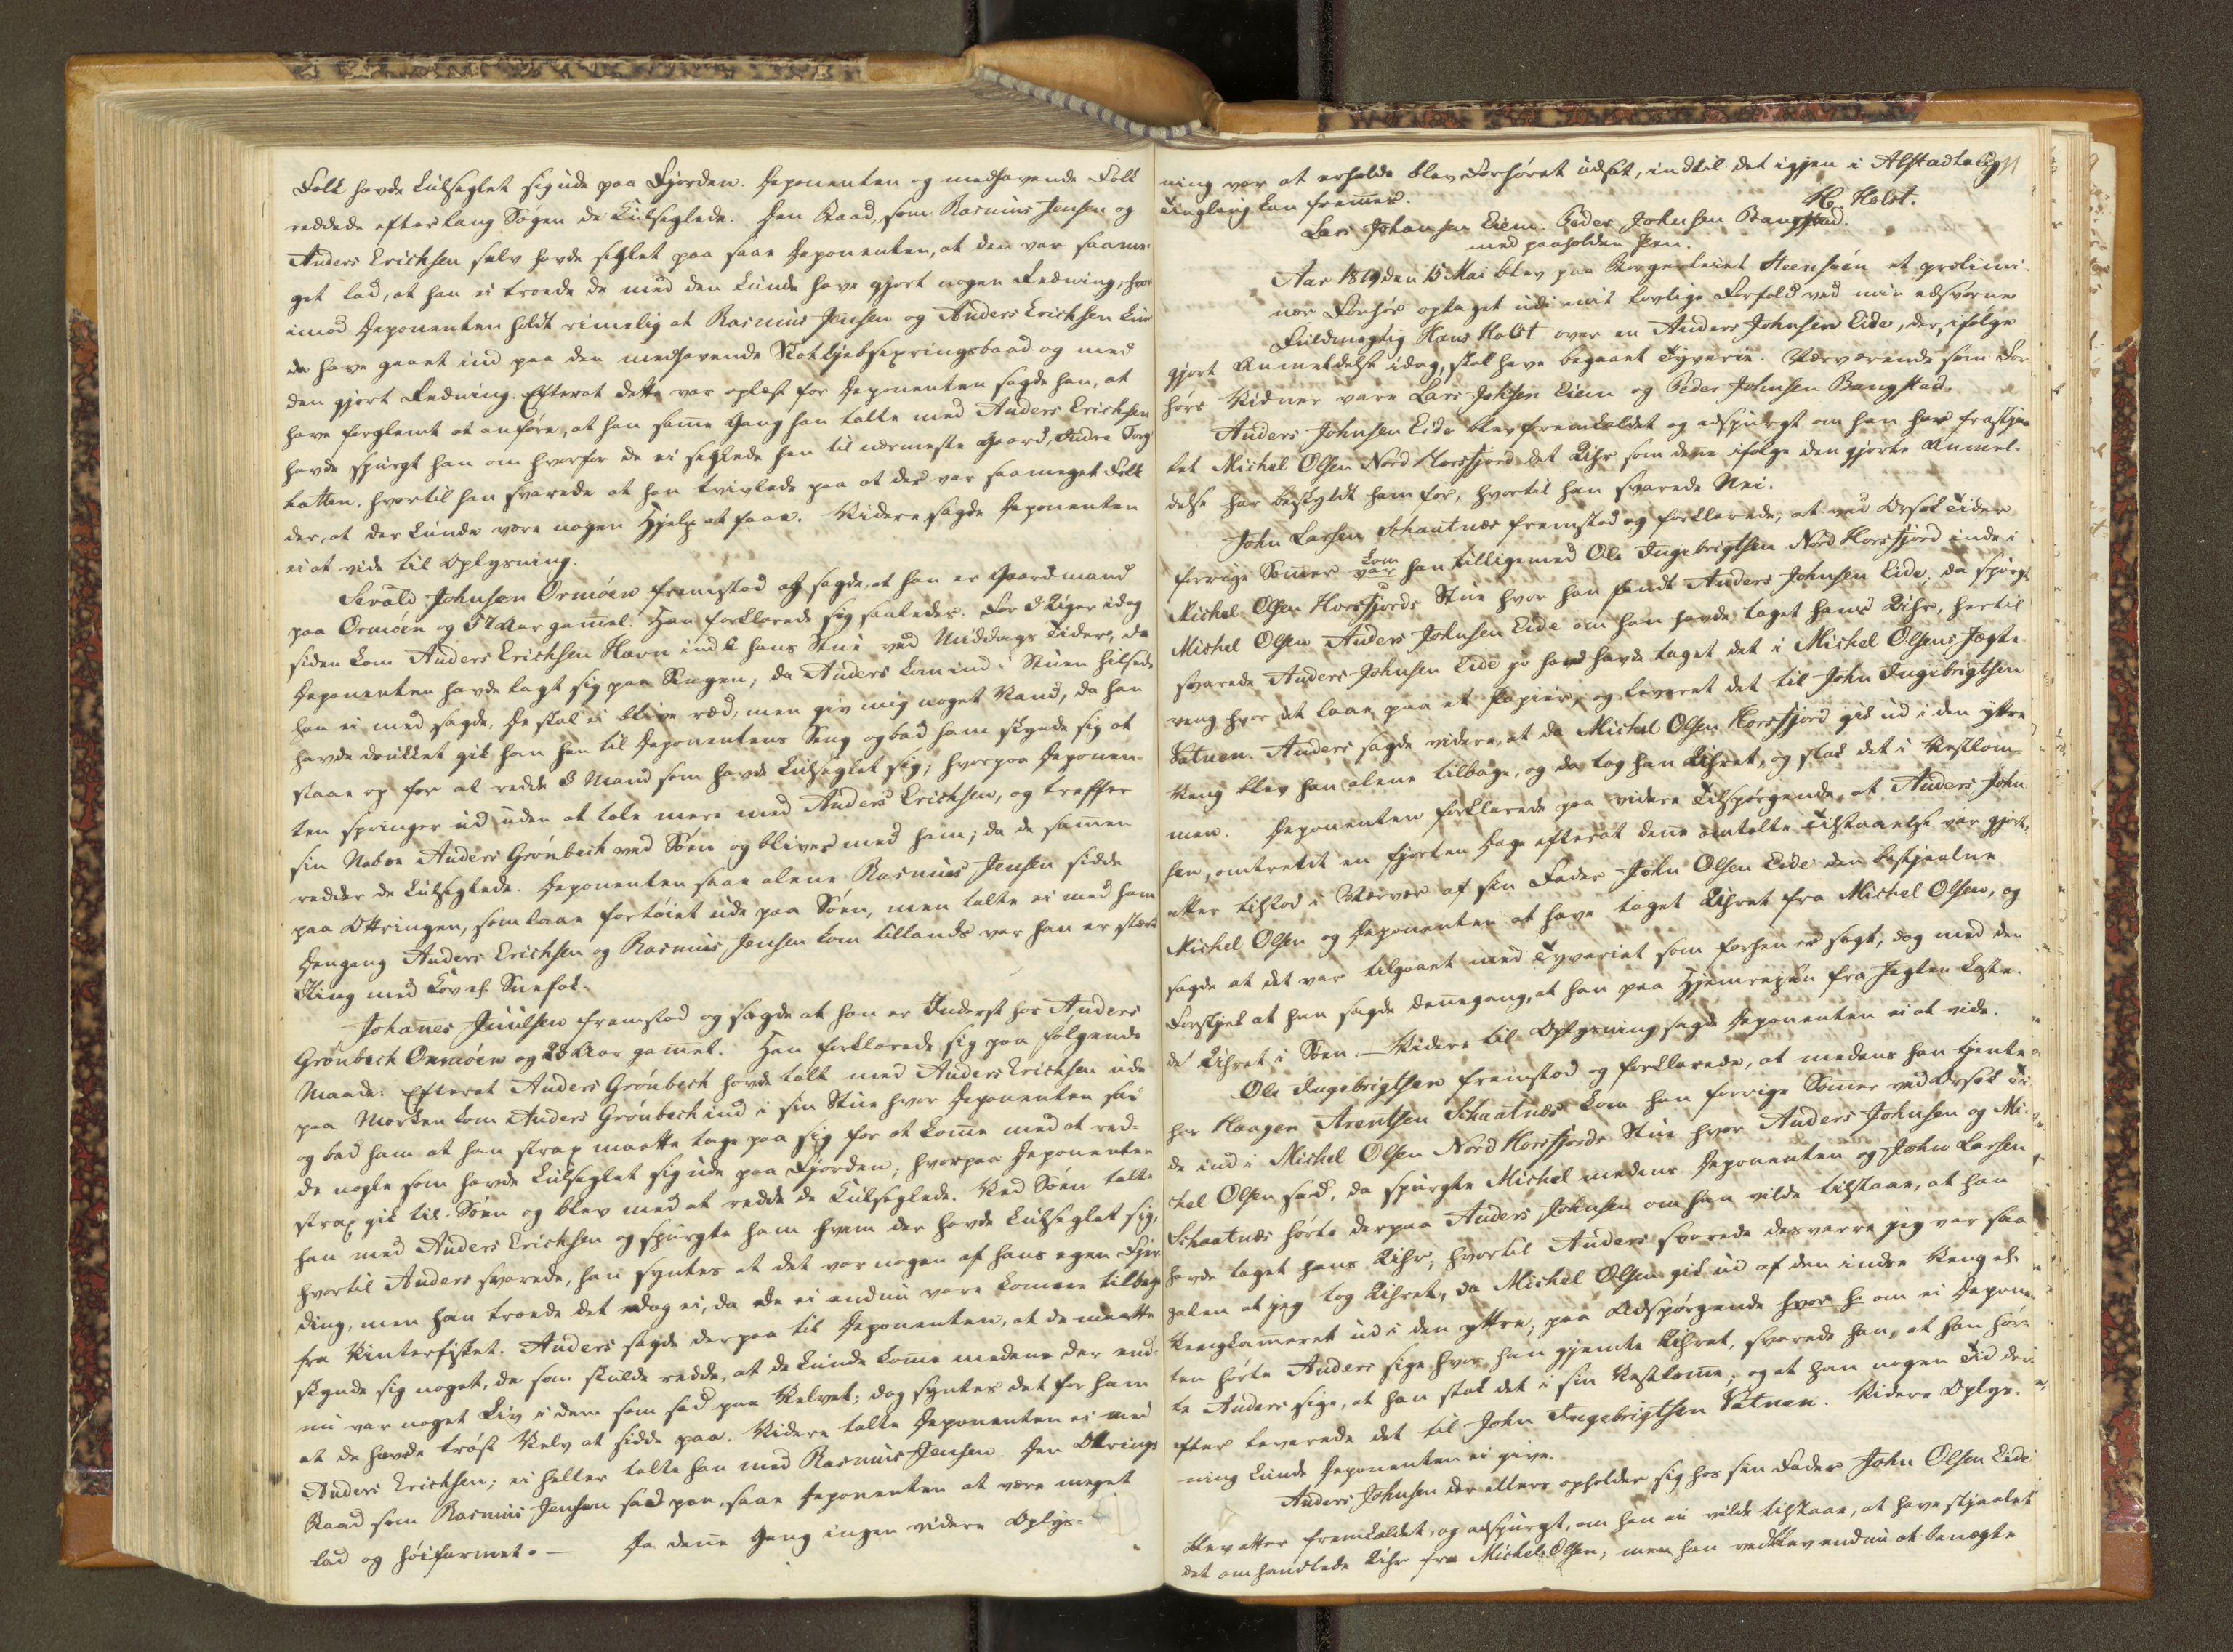 Folk havde kulseglet sig ude paa Fjorden. Deponenten og medhavende Folk
reddede efter lang Søgen de Kulseglede. Den Baad, som Rasmus Jensen og
Anders Erichsen selv havde seglet paa saae Deponenten, at den var saa me-
get lad, at han ei troede de med den kunde have gjort nogen Redning, hvor
imod Deponenten holdt rimelig at Rasmus Jensen og Anders Erichsen kun
de have gaaet ind paa den medhavende Skotkjøbsspringsbaad og med
den gjort Redning. Efterat dette var oplæst for Deponenten sagde han, at
have forglemt at anføre, at han samme Gang han talte med Anders Erichsen
havde spurgt han om hvorfor de ei seglede hen til nærmeste Gaard, Indre Torg
hatten, hvortil han svarede at han tvivlede paa at der var saameget Folk
der, at der kunde være nogen Hjelp at faae. Videre sagde Deponenten
ei at vide til Oplysning.
Sevald Johnsen Ormøen fremstod og sagde, at han er Gaardmand
paa Ormøen og 57 Aar gammel. Han forklarede sig saaledes. For 3 Uger idag
siden kom Anders Erichsen Havn ind i hans Stue ved Middags Tider, da
Deponenten havde lagt sig paa Sengen; da Anders kom ind i Stuen hilsede
han ei med sagde, De skal ei blive ræd; men giv mig noget Vand, da han
havde drukket gik han hen til Deponentens Seng og bad ham skynde sig at
staae op for at redde 3 Mand som havde kulseglet sig; hvorpaa Deponen-
ten springer ud uden at tale mere med Anders Erichsen, og treffer
sin Naboe Anders Grønbech ved Søen og bliver med ham; da de sammen
redder de kulseglede. Deponenten saae alene Rasmus Jensen sidde
paa Ottringen, som laae fortøiet ude paa Søen, men talte ei med ham
Dengang Anders Erichsen og Rasmus Jensen kom tillands var han er stærk
King med Kov af Snefok.
Johanes Juulsen fremstod og sagde at han er Inderst hos Anders
Grønbech Ormøen og 28 Aar gammel. Han forklarede sig paa følgende
Maade: Efterat Anders Grønbech havde talt med Anders Erichsen ude
paa Marken kom Anders Grønbech ind i sin Stue hvor Deponenten sad
og bad ham at han strax maatte tage paa sig for at komme med at red-
de nogle som havde kulseglet sig ude paa Fjorden; hvorpaa Deponenten
strax gik til Søen og blev med at redde de kulseglede. Ved Søen talte
han med Anders Erichsen og spurgte ham hvem der havde kulseglet sig,
hvortil Anders svarede, han syntes at det var nogen af hans egen Fjer-
ding, men han troede det dog ei, da de ei endnu vare komne tilbage
fra Vinterfisket. Anders sagde derpaa til Deponenten, at de maatte
skynde sig noget, de som skulde redde, at de kunde komme medens der end-
nu var noget Liv i dem som sad paa Velvet; dog syntes det for ham
at de havde trøst Velv at sidde paa. Videre talte Deponenten ei med
Anders Erichsen; ei heller talte han med Rasmus Jensen. Den Ottrings
Baad som Rasmus Jensen sad paa, saae Deponenten at være meget
lad og høifarmet. — Da denne Gang ingen videre Oplys-
ning var at erholde blev Forhøret udsat, indtil det igjen i Alstadhoug
Tinglaug kan fremmes.
H. Holst.
Lars Johansen Eiem. Peder Johnsen Bangstad.
med paaholden Pen.
Aar 1819 den 15 Mai blev paa Borgerleiet Steensøen et prelimi-
nær Forhør optaget udi mit lovlige Forfald ved min edsvorne
Fuldmægtig Hans Holst over en Anders Johnsen Eide, der, ifølge
gjort Anmeldelse idag, skal have begaaet Tyverie. Nærværende som For
hørs Vidner vare Lars Johsen Eiem og Peder Johnsen Bangstad.
Anders Johnsen Eide blev fremkaldet og adspurgt om han har frastjaa
let Michel Olsen Nord Horsfjord det Uhr som denne ifølge den gjorte Anmel-
delse har beskyldt ham for, hvortil han svarede Nei.
John Larsen Schaatnæs fremstod og forklarede, at ved Orsok Tider
forrige Sommer var kom han tilligemed Ole Ingebrigtsen Nord Horsfjord inde i
Michel Olsen Horsfjords Stue hvor han fandt Anders Johnsen Eide, da spurgt
Michel Olsen Anders Johnsen Eide om han havde taget hans Uhr, hertil
svarede Anders Johnsen Eide jo han havde taget det i Michel Olsens Jægte
veng hvor det laae paa et Papiir, og leveret det til John Ingebrigtsen
Vatnen. Anders sagde videre, at da Michel Olsen Horsfjord gik ud i den yttre
Veng blev han alene tilbage, og da tog han Uhret, og stak det i Vestlom-
men. Deponenten forklarede paa videre Tilspørgende, at Anders John
sen, omtrentlit en fjorten Dage efterat denne omtalte Tilstaaelse var gjort,
atter tilstod i Nærvær af sin Fader John Olsen Eide den bestjaalne
Michel Olsen og Deponenten at have taget Uhret fra Michel Olsen, og
sagde at det var tilgaaet med Tyveriet som forhen er sagt, dog med den
Forskjel at han sagde denne gang, at han paa Hjemreisen fra Jegten kaste-
de Uhret i Søen. — Videre til Oplysning sagde Deponenten ei at vide.
Ole Ingebrigtsen fremstod og forklarede, at medens han tjente
hos Haagen Arentsen Schaatnæs kom han forrige Sommer ved Orsok Ti-
de ind i Michel Olsen Nord Horsfjords Stue hvor Anders Johnsen og Mi-
chel Olsen sad, da spurgte Michel medens Deponenten og John Larsen
Schaatnæs hørte derpaa Anders Johnsen om han vilde tilstaae, at han
havde taget hans Uhr, hvortil Anders svarede desverre jeg var saa
galen at jeg tog Uhret, da Michel Olsen gik ud af den indre Veng el-
Vengkameret ud i den yttre; paa Adspørgende hvor h om ei Depone-
ten hørte Anders sige hvor han gjemte Uhret, svarede han, at han hør-
te Anders sige, at han stak det i sin Vestlomme; og at han nogen Tid der-
efter leverede det til John Ingebrigtsen Vatnen. Videre Oplys-
ning kunde Deponenten ei give.
Anders Johnsen der ellers opholder sig hos sin Fader John Olsen Eide
blev atter fremkaldet, og adspurgt, om han ei vilde tilstaae, at have stjaalet
det omhandlede Uhr fra Michel Olsen; men han vedblev endnu at benægte